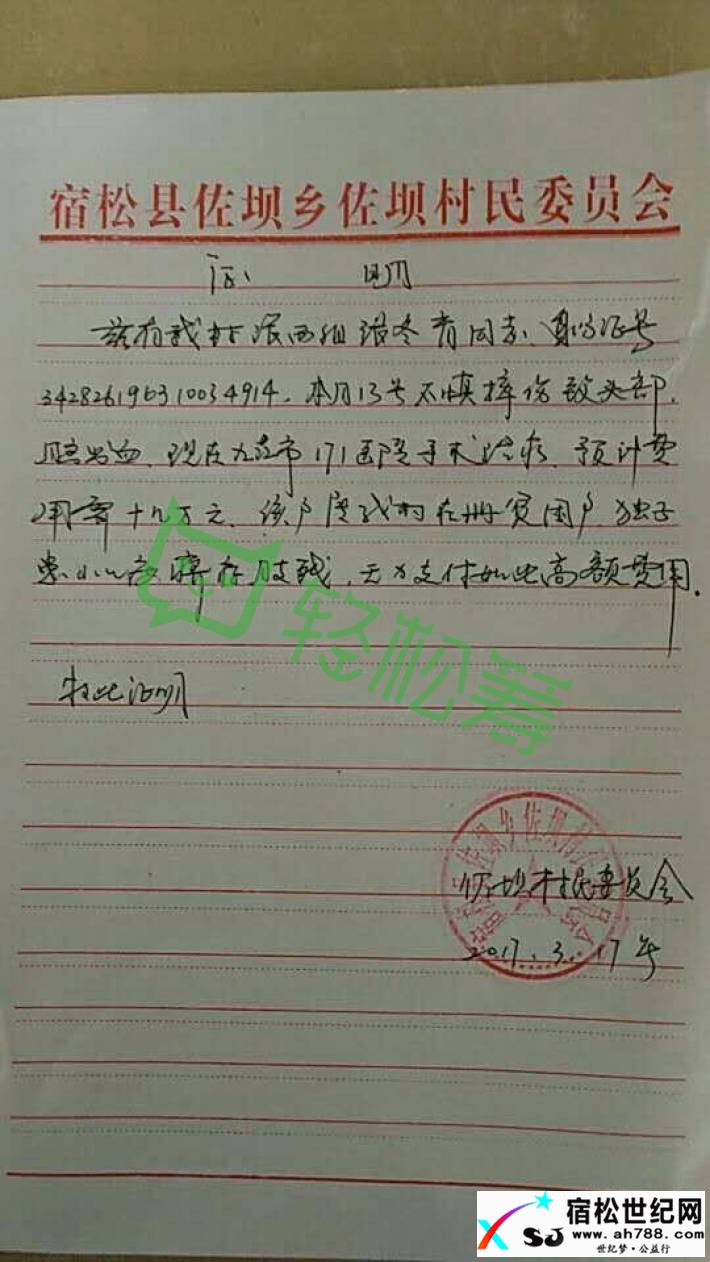 宿松县佐坝乡佐坝村民委员会
证 明
兹有我村张西组张冬有同志、身份证号
342826196310034914。本月13号不慎摔伤致头部,
脑出血、现在九江市171医院手术治疗、预计费
用需十几万元、该户属我村在册贫困户、独子
患小儿麻痹 肢残,无力支付如此高额费用.
特此证明
轻松筹
佐坝村民委员会
2017.3.17号
宿松世纪网
www.ah788.com
世纪梦·公益行
XSJ